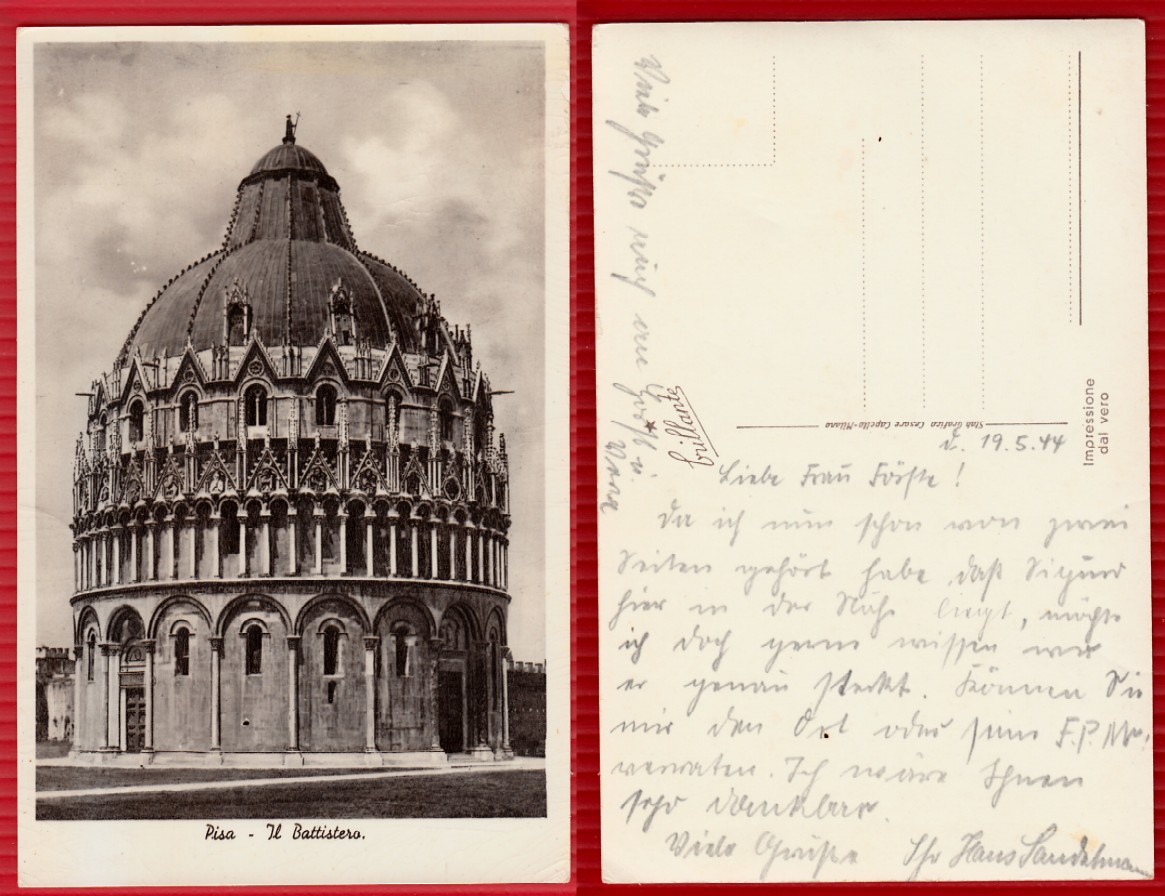 Pisa - Il Battistero.
Impressione
dal vero
Stab Grafico Cesare Capello-Milano
brillante
d. 19.5.44
Liebe Frau Förste!
Da ich nun schon von zwei
Seiten gehört habe daß Sigurd
hier in der Nähe liegt, möchte
ich doch gerne wissen wo
er genau steckt. Können Sie
mir den Ort oder seine F.P.Nr.
verraten. Ich wäre Ihnen
sehr dankbar.
Viele Grüße Ihr Hans Sandelmann
Viele Grüße auch an